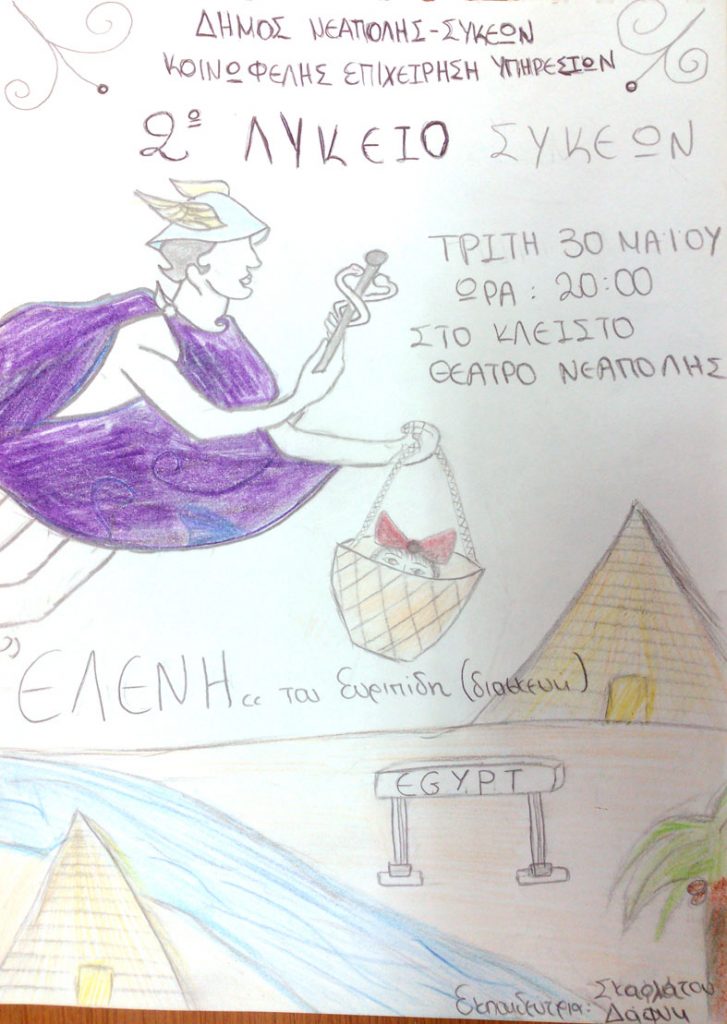 ΔΗΜΟΣ ΝΕΑΠΟΛΗΣ-ΣΥΚΕΩΝ
ΚΟΙΝΩΦΕΛΗΣ ΕΠΙΧΕΙΡΗΣΗ ΥΠΗΡΕΣΙΩΝ
2º ΛΥΚΕΙΟ ΣΥΚΕΩΝ
ΤΡΙΤΗ 30 ΜΑΪΟΥ
ΩΡΑ: 20:00
ΣΤΟ ΚΛΕΙΣΤΟ
ΘΕΑΤΡΟ ΝΕΑΠΟΛΗΣ
"ΕΛΕΝΗ" του Ευριπίδη (διασκευη)
EGYPT
Εκπαιδευτρια: Σκαρλάτου
Δάφνη